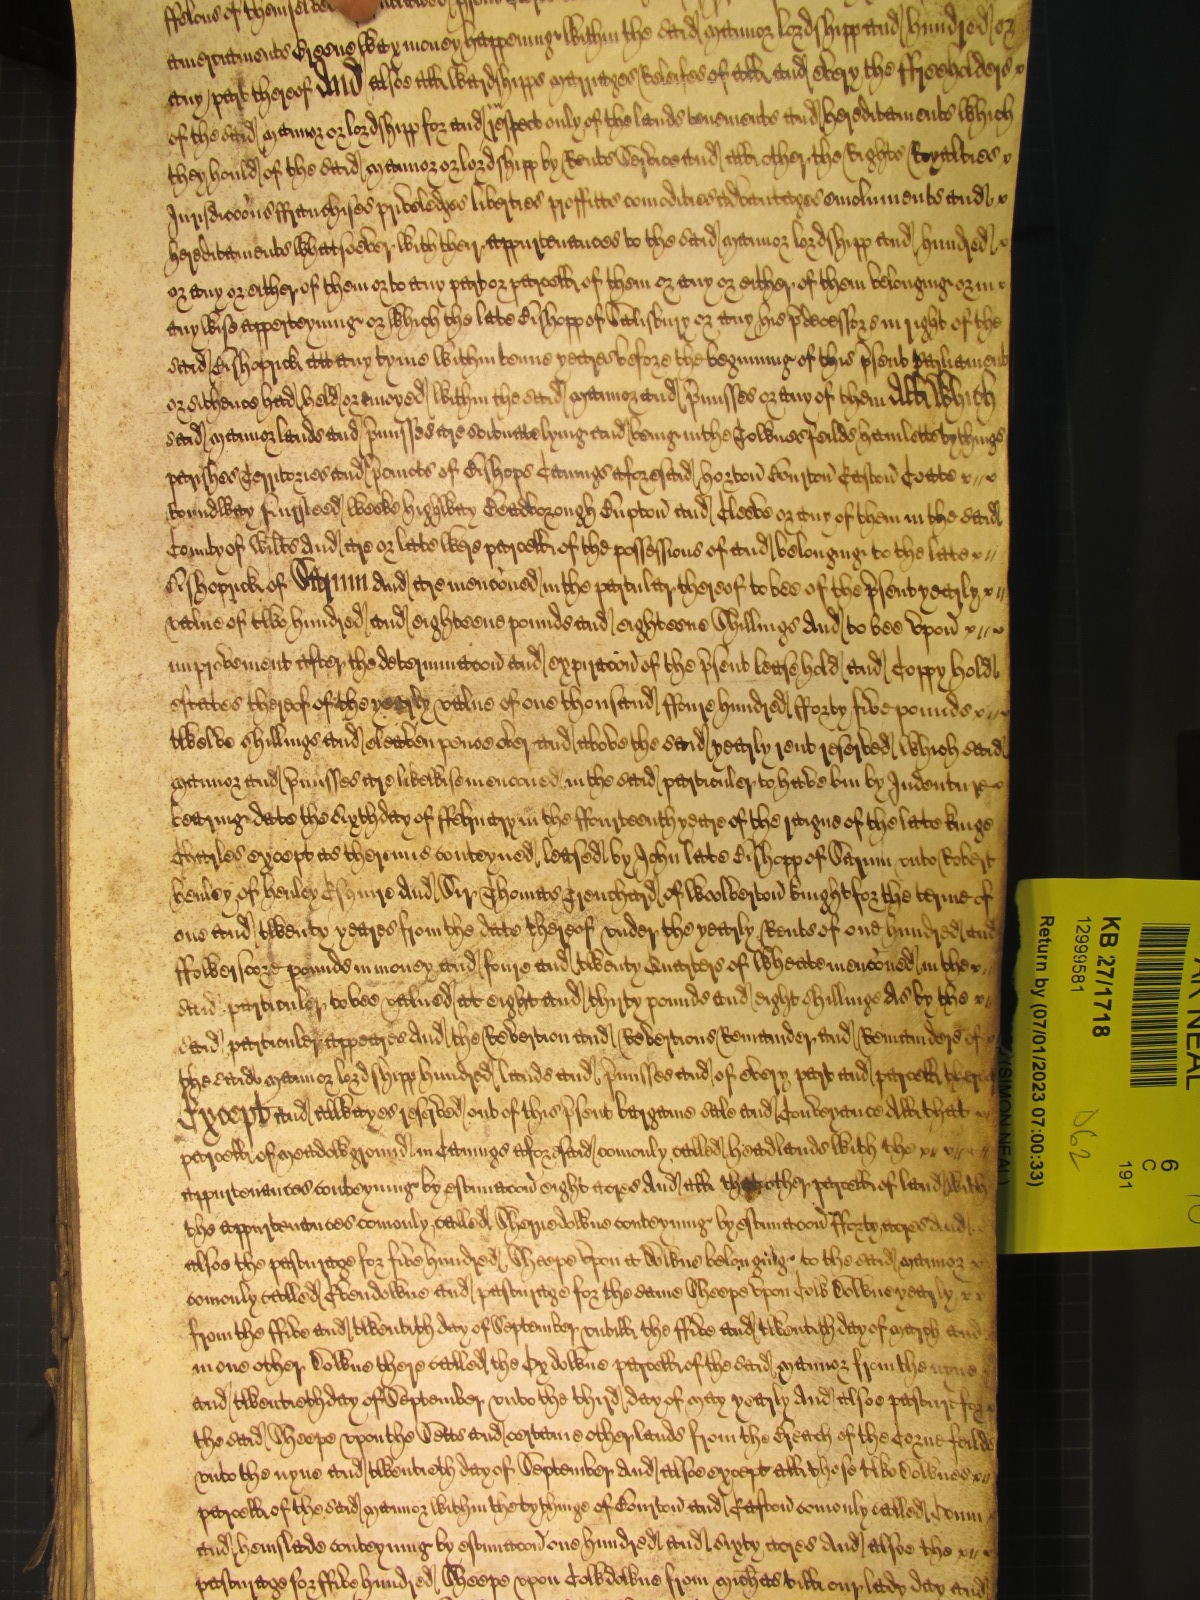 ffelons of themselves
amerciaments Greene Wax money happening within the said mannor Lordshipp and hundred or
any part thereof And alsoe all Wardshipps Marriages Releifes of all and every the ffreeholders
of the said mannor or Lordshipp for and in respect only of the lands tenements and hereditaments which
they hould of the said mannor or lordshipp by Rents Service and all other the Rights Royalties
Jurisdiccons ffranchises priveledges liberties proffitts comodities advantages emoluments and
hereditaments whatsoever with their appurtenances to the said mannor lordshipp and hundred
or any or either of them or to any part or parcell of them or any or either of them belonging or in
any wise apperteyning or which the late Bishopp of Salisbury or any his p'decessors in right of the
said Bishoprick att any tyme within tenne yeares before the beginning of this p'sent Parliament
or sithence had held or enioyed within the said mannor and p'misses or any of them All which
said mannor lands and p'misses are scituate lying and being in the Townes feilds hamletts tythings
parishes Territories and p'cincts of Bishops Cannings aforesaid horton Bourton Easton Coate
Roundway weeke highway and Cleeve or any of them in the said
County of Wilts And are or late were parcell of the possessions of and belonging to the late
Bishoprick of Sarum And are menconed in the particular thereof to bee of the p'sent yearly
value of two hundred and eighteene pounds and eighteene Shillings And to bee upon
improvement after the determinacon and expiracon of the p'sent leasehold and Coppy hold
estates thereof of the yearly value of one thousand ffoure hundred fforty five pounds
twelve shillings and eleaven pence over and above the said yearly rent reserved which said
mannor and p'misses are likewise menconed in the said particuler to have bin by Indenture
bearing date the Sixth day of ffebruary in the ffourteenth yeare of the raigne of the late kinge
Charles except as thereinne conteyned leased by John late Bishopp of Sarum unto Robert
henley of henley Esquire And Sir Thomas Trenchard of Woolverton knight for the terme of
one and twenty yeares from the date thereof under the yearly Rents of one hundred and
ffowerscore pounds in money and foure and twenty Quarters of Wheate menconed in the
said particuler to bee valued at eight and thirty pounds and eight shillings As by the
said particuler appeares And the Revertion and Revertions Remainder and Remainders of
the said mannor lordshipp hundred lands and p'misses and of every part and parcell
Except and allwayes reserved out of this p'sent bargaine sale and Conveyance All that
parcell of meadow ground in Cannings aforesaid comonly called headlands with the
appurtenances conteyning by estimacon eight acres And all that other parcell of land with
the appurtenances comonly called Shernedowne conteyning by estimacon fforty acres And
alsoe the pasturage for five hundred Sheepe upon a downe belonging to the said mannor
comonly called Evendowne and pasturage for the same Sheepe upon Cow downe yearly
from the ffive and twentith day of September untill the ffive and twentith day of march and
in one other downe there called the Ox downe parcell of the said mannor from the nyne
and twentieth day of September unto the third day of may yearly And alsoe pasture for
the said Sheepe upon the and certaine other lands from the Breach of the Corne feilds
unto the nyne and twentieth day of September And alsoe except all those two downes
parcell of the said mannor within the tythinge of Bourton and Easton comonly called
and hemslade conteyning by estimacon one hundred and Sixty acres And alsoe the
pasturage for ffive hundred Sheepe upon Cowdowne from michas till our lady day and
KB 27/1718
12999581
Return by (07/01/2023 07:00:33)
(SIMON NEAL)
6
C
191
062